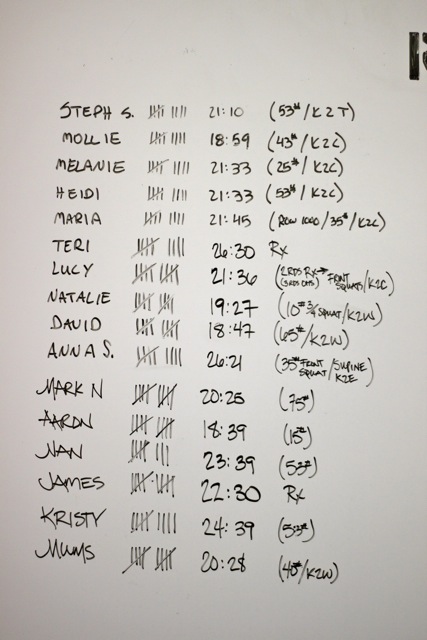 STEPH S. 𝍸 |||| 21:10 (53#/K2T)
MOLLIE 𝍸 |||| 18:59 (43#/K2C)
MELANIE 𝍸 |||| 21:33 (25#/K2C)
HEIDI 𝍸 |||| 21:33 (53#/K2C)
MARIA 𝍸 |||| 21:45 (ROW 1000/35#/K2C)
TERI 𝍸 |||| 26:30 Rx
LUCY 𝍸 𝍸 21:36 (2RDS RX→ (3RDS OHS) FRONT SQUATS/K2C)
NATALIE 𝍸 𝍸 19:27 (10# 3/4 SQUAT/K2W)
DAVID 𝍸 𝍸 18:47 (65#/K2W)
ANNA S. 𝍸 |||| 26:21 (35# FRONT SQUAT/SUPINE K2E)
MARK N 𝍸 𝍸 20:25 (75#)
AARON 𝍸 𝍸 18:39 (15#)
NAN 𝍸 ||| 23:39 (53#)
JAMES 𝍸 𝍸 22:30 Rx
KRISTY 𝍸 |||| 24:39 (53#)
MUMS 𝍸 𝍸 20:28 (40#/K2W)